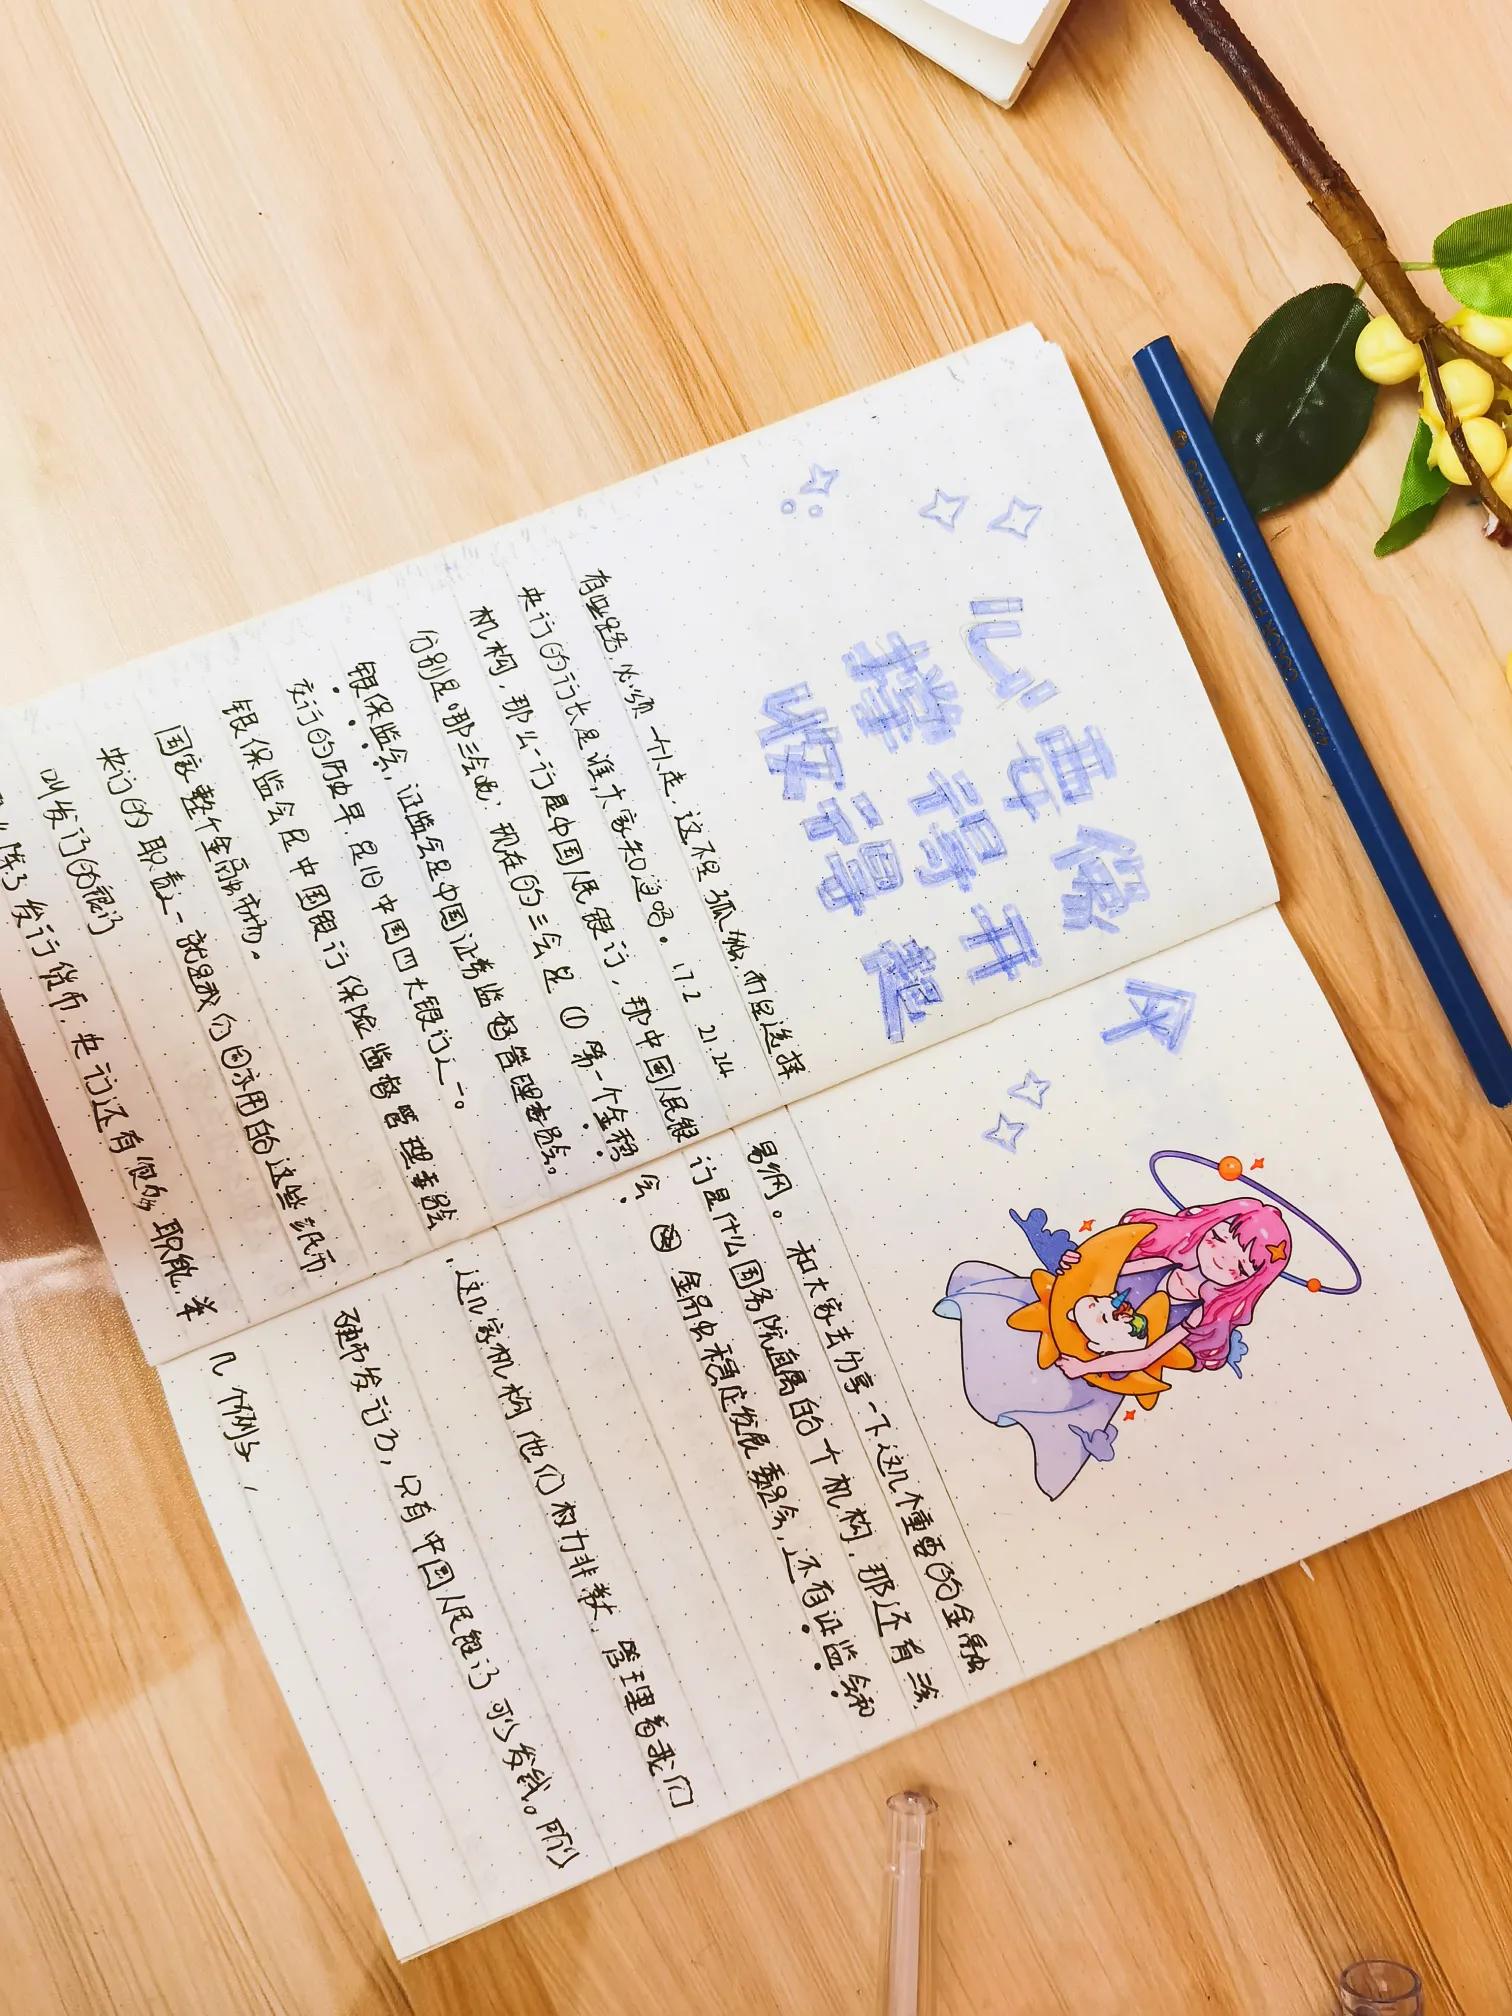 心要像
撑得开
收得起
有些路,必须一个人走,这不是孤独,而是选择
央行的行长是谁,大家知道吗。17.2 21.24 易纲。和大家去分享一下这几个重要的金融
机构,那么一行是中国人民银行,那中国人民银行是什么国务院直属的一个机构,那还有三会
分别是哪三会呢:现在的三会是 ① 第一个金稳会 ② 金融稳定发展委员会,还有证监会和
银保监会,证监会是中国证券监督管理委员会。
交行的历史早,是旧中国四大银行之一。
银保监会是中国银行保险监督管理委员会,这几家机构他们权力非常大,管理着我们
国家整个金融市场。
央行的职责之一就是我们因为用的这些纸币硬币发行了,只有中国人民银行可以发钱。所以
叫发行的银行
除了发行货币,央行还有很多职能,举几个例子,
MARCO COLOR PENCIL 4200